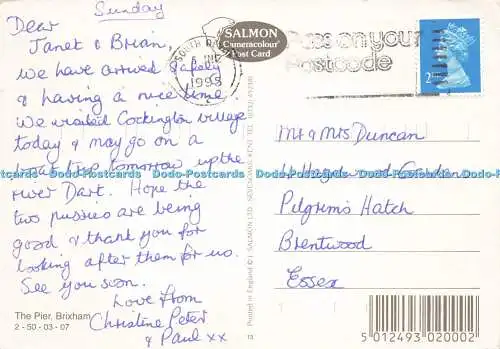 Sunday
Dear
Janet & Brian,
We have arrived safely
& having a nice time.
We visited Cockington village
today & may go on a
boat trip tomorrow up the
river Dart. Hope the
two pussies are being
good & thank you for
looking after them for us.
See you soon.
Love from
Christine Peter
& Paul xx
The Pier, Brixham
2 - 50 - 03 - 07
SALMON
Cameracolour
Post Card
Printed in England © J. SALMON LTD., SEVENOAKS, KENT. TEL:
13
SOUTH
1995
on your
Postcode
2
Mr & Mrs Duncan
Pilgrims Hatch
Brentwood
Essex
5 012493 020002
Dodo-Postcards Dodo-Postcards Dodo-Postcards Dodo-Postcards